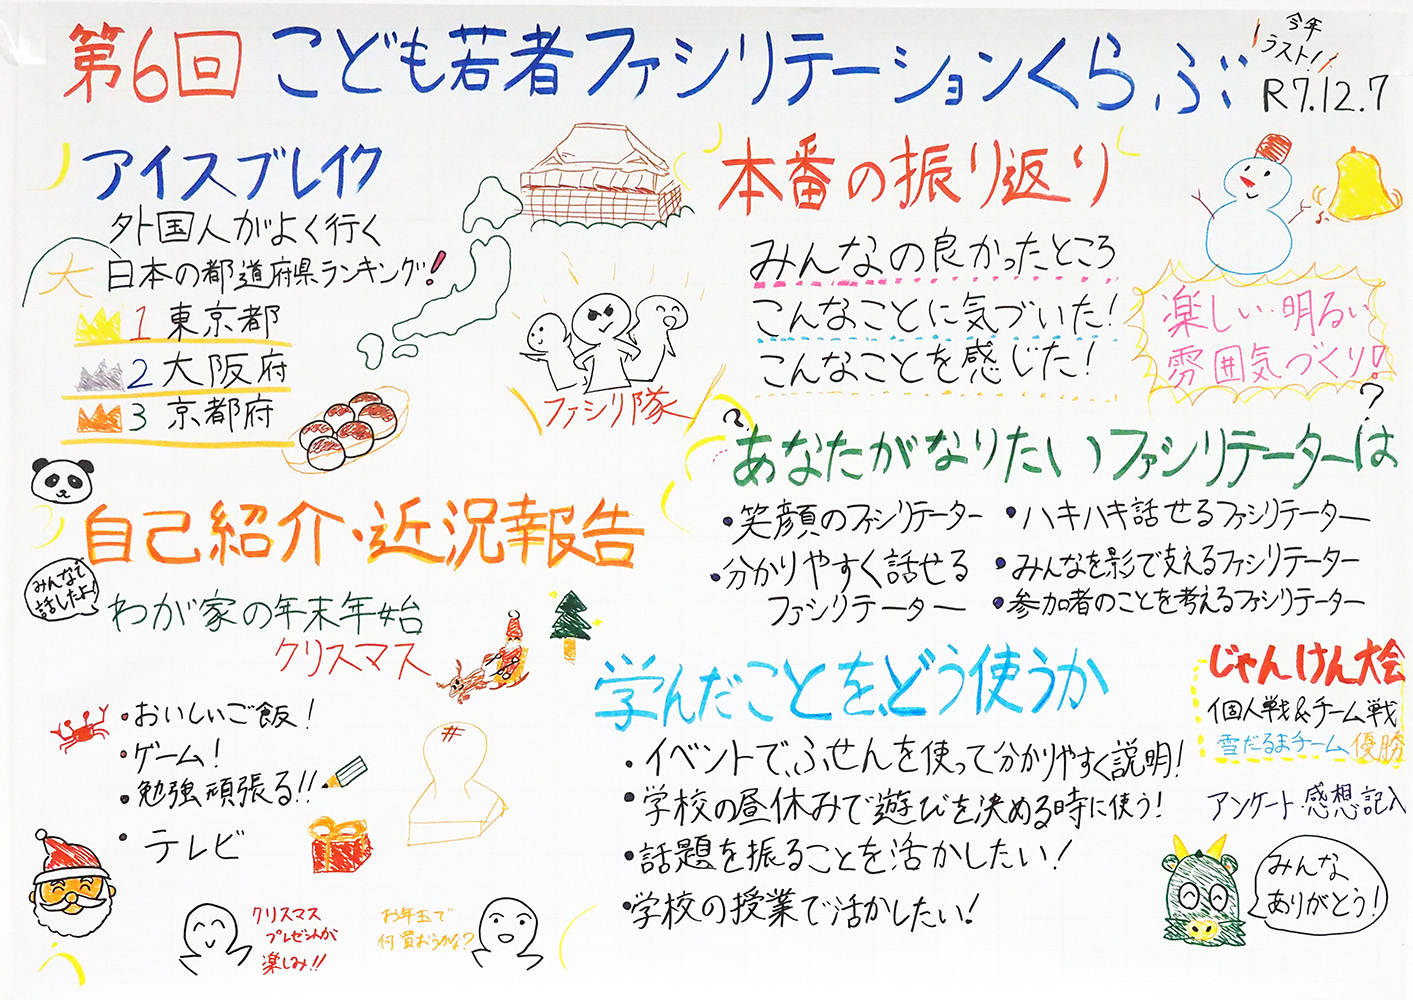 第6回 こども若者ファシリテーションくらぶ
今年
ラスト!
R7.12.7
アイスブレイク
外国人がよく行く
日本の都道府県ランキング!
大
1 東京都
2 大阪府
3 京都府
ファシリ隊
自己紹介・近況報告
みんなで
話したよ!
わが家の年末年始
クリスマス
・おいしいご飯!
・ゲーム!
・勉強頑張る!!
・テレビ
クリスマス
プレゼントが
楽しみ!!
お年玉で
何買おうかな?
本番の振り返り
みんなの良かったところ
こんなことに気づいた!
こんなことを感じた!
楽しい・明るい
雰囲気づくり!
あなたがなりたいファシリテーターは?
・笑顔のファシリテーター
・分かりやすく話せる
ファシリテーター
・ハキハキ話せるファシリテーター
・みんなを影で支えるファシリテーター
・参加者のことを考えるファシリテーター
学んだことを、どう使うか
・イベントで、ふせんを使って分かりやすく説明!
・学校の昼休みで遊びを決める時に使う!
・話題を振ることを活かしたい!
・学校の授業で活かしたい!
じゃんけん大会
個人戦&チーム戦
雪だるまチーム優勝
アンケート・感想記入
みんな
ありがとう!